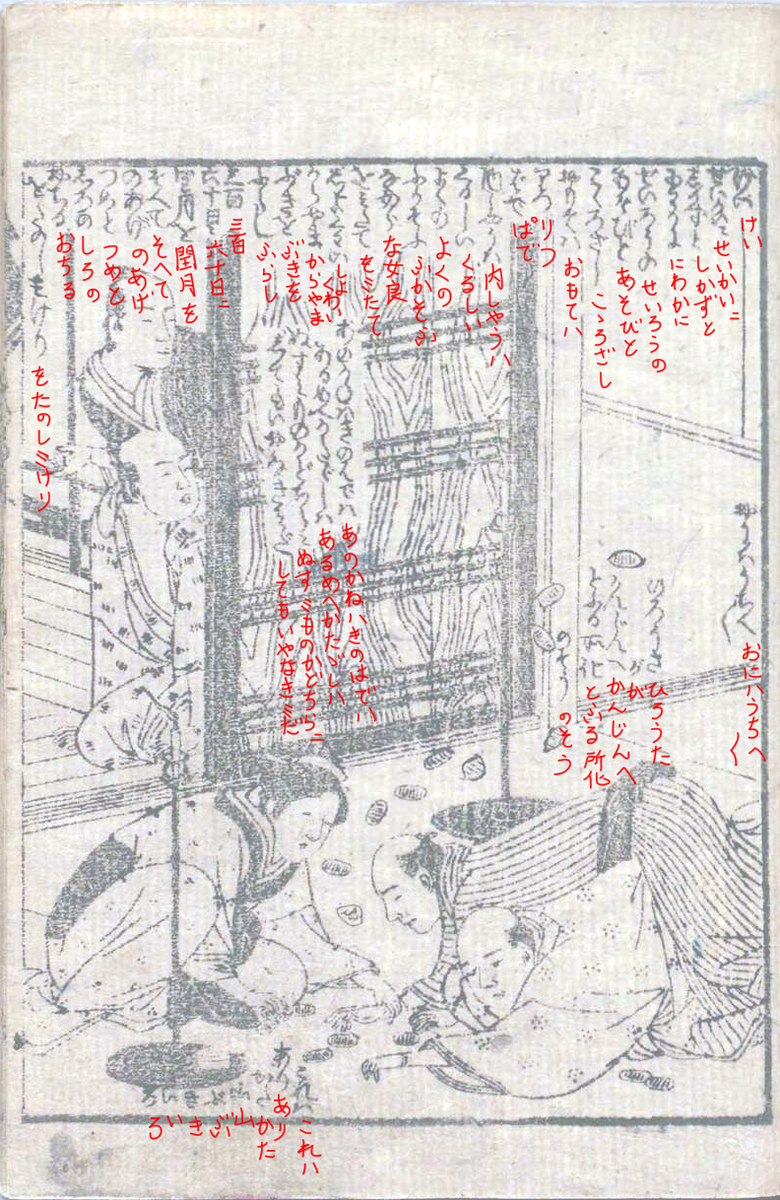 けい
せいかいニ
しかずと
にわかに
せいろうの
あそびと
こゝろざし
おもてハ
りつ
ぱで
内しやうハ
くるしい
よくの
ふかそふ
な女良
をミたて
しよくわい
からやま
ぶきを
ふらし
三百
六十日ニ
閏月を
そへて
のあげ
つめと
しろの
おちる
をたのしミけり
おにハうちへ〱
ひろうた
が
かんじんへ
とふる所化
のそう
あのかねハきのはでハ
あるめへかたゞしハ
ぬすミものかどちらニ
してもいやなきミだ
これハ
あり
かた
山
ぶきいろ